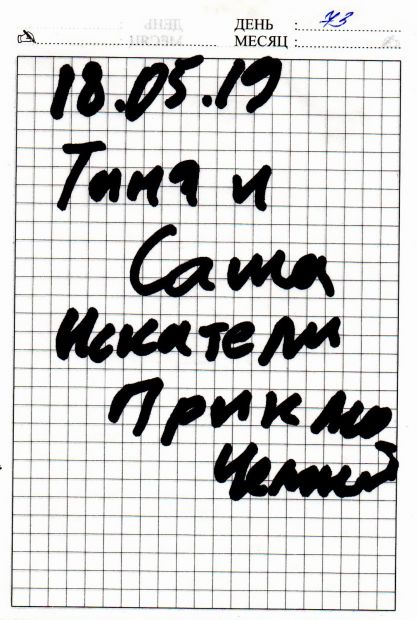 ДЕНЬ : 73
МЕСЯЦ :
18.05.19
Таня и
Саша
искатели
Приклю
чений